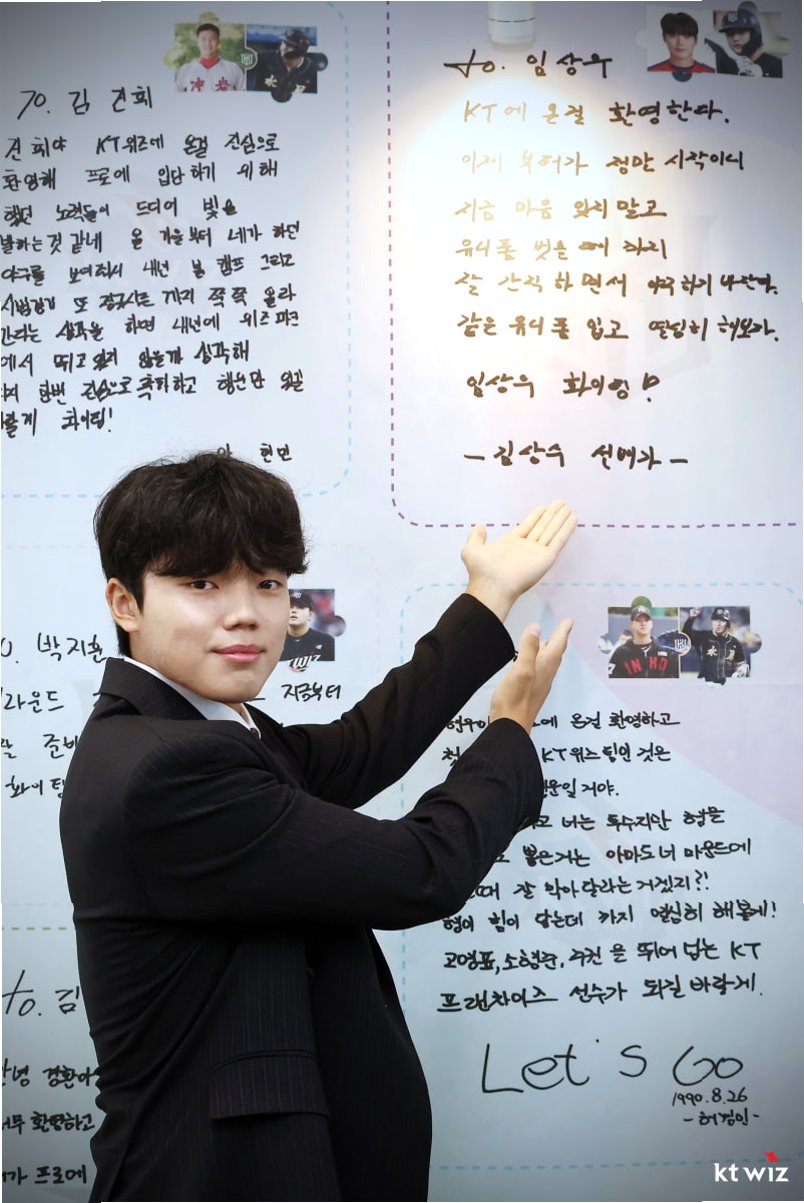 TO. 김 건희
건희야 KT위즈에 온걸 진심으로
환영해 프로에 입단하기 위해
했던 노력들이 드디어 빛을
발하는것 같네 올 가을부터 네가 하던
야구를 보여줘서 내년 봄 캠프 그리고
시범경기 또 정규시즌 까지 쭉쭉 올라
간다는 생각을 하면 내년에 위즈파크
에서 뛰고 있지 않을까 생각해
다시 한번 진심으로 축하하고
화이팅!
안 현민
to. 임상우
KT에 온걸 환영한다.
이제 부터가 정말 시작이니
지금 마음 잊지 말고
유니폼 벗을 때 까지
잘 간직 하면서 야구하기 바란다.
같은 유니폼 입고 열심히 해보자.
임상우 화이팅!
- 김상수 선배가 -
박지훈
라운드
지금부터
준비
화이팅
에 온걸 환영하고
첫 KT위즈 팀인 것은
행운일 거야.
너는 투수지만 형을
뽑은거는 아마도 너 마운드에
때 잘 막아달라는거겠지?!
형이 힘이 닿는데 까지 열심히 해볼게!
고영표, 소형준, 주권 을 뛰어 넘는 KT
프랜차이즈 선수가 되길 바랄게.
Let's Go
1990.8.26
- 허경민 -
to. 김
안녕 경환아
너무 환영하고
프로에
kt wiz